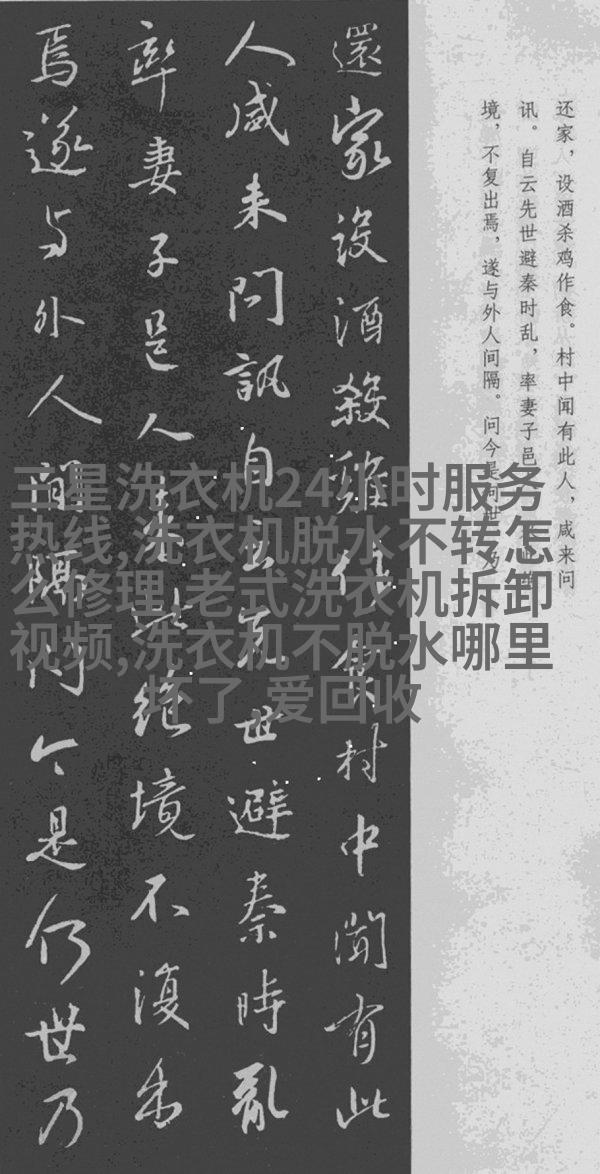 还家，设酒杀鸡作食。村中闻有此人，咸来问
讯。自云先世避秦时乱，率妻子邑
境，不复出焉，遂与外人间隔。问今是何世，乃
還家設酒殺雞作食村中聞有此
人咸来問訊自云先世避秦時亂
率妻子邑人来此絶境不復出
焉遂与外人間隔問今是何世乃
三星洗衣机24小时服务
热线,洗衣机脱水不转怎
么修理,老式洗衣机拆卸
视频,洗衣机不脱水哪里
坏了 爱回收